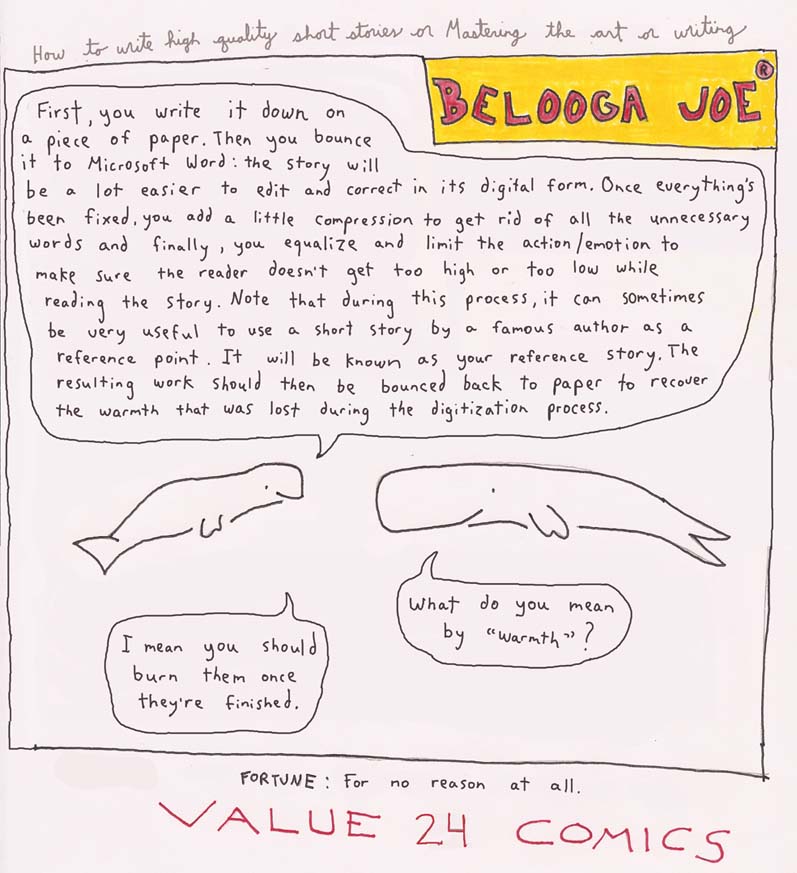 How to write high quality short stories or Mastering the art or writing
BELOOGA JOE ®
First, you write it down on
a piece of paper. Then you bounce
it to Microsoft Word: the story will
be a lot easier to edit and correct in its digital form. Once everything's
been fixed, you add a little compression to get rid of all the unnecessary
words and finally, you equalize and limit the action/emotion to
make sure the reader doesn't get too high or too low while
reading the story. Note that during this process, it can sometimes
be very useful to use a short story by a famous author as a
reference point. It will be known as your reference story. The
resulting work should then be bounced back to paper to recover
the warmth that was lost during the digitization process.
What do you mean
by "warmth"?
I mean you should
burn them once
they're finished.
FORTUNE: For no reason at all.
VALUE 24 COMICS